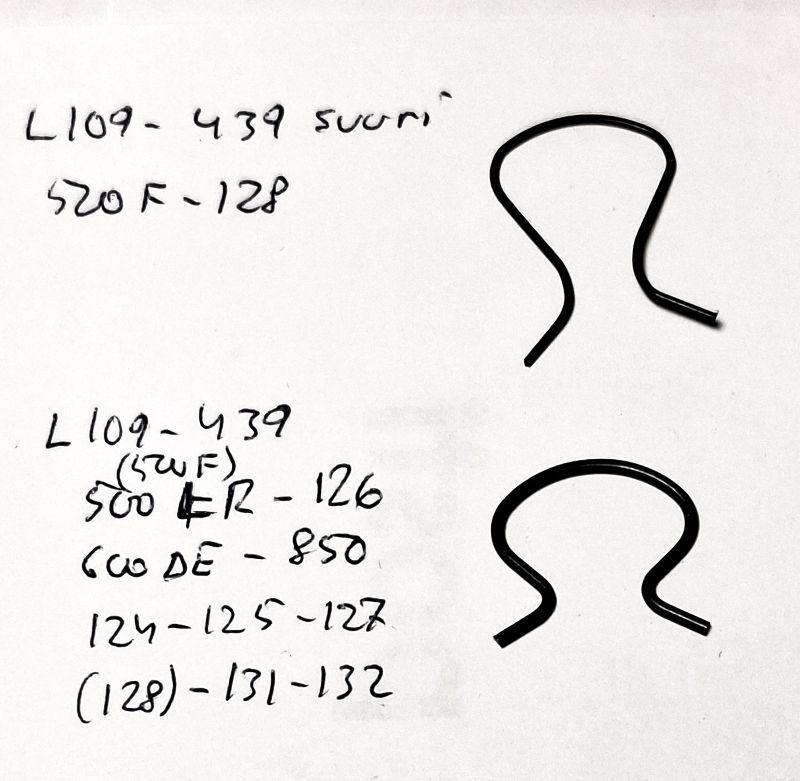 L109 - 439 suuri
520 F - 128
L109 - 439
(520 F)
500 ER - 126
600 DE - 850
124 - 125 - 127
(128) - 131 - 132